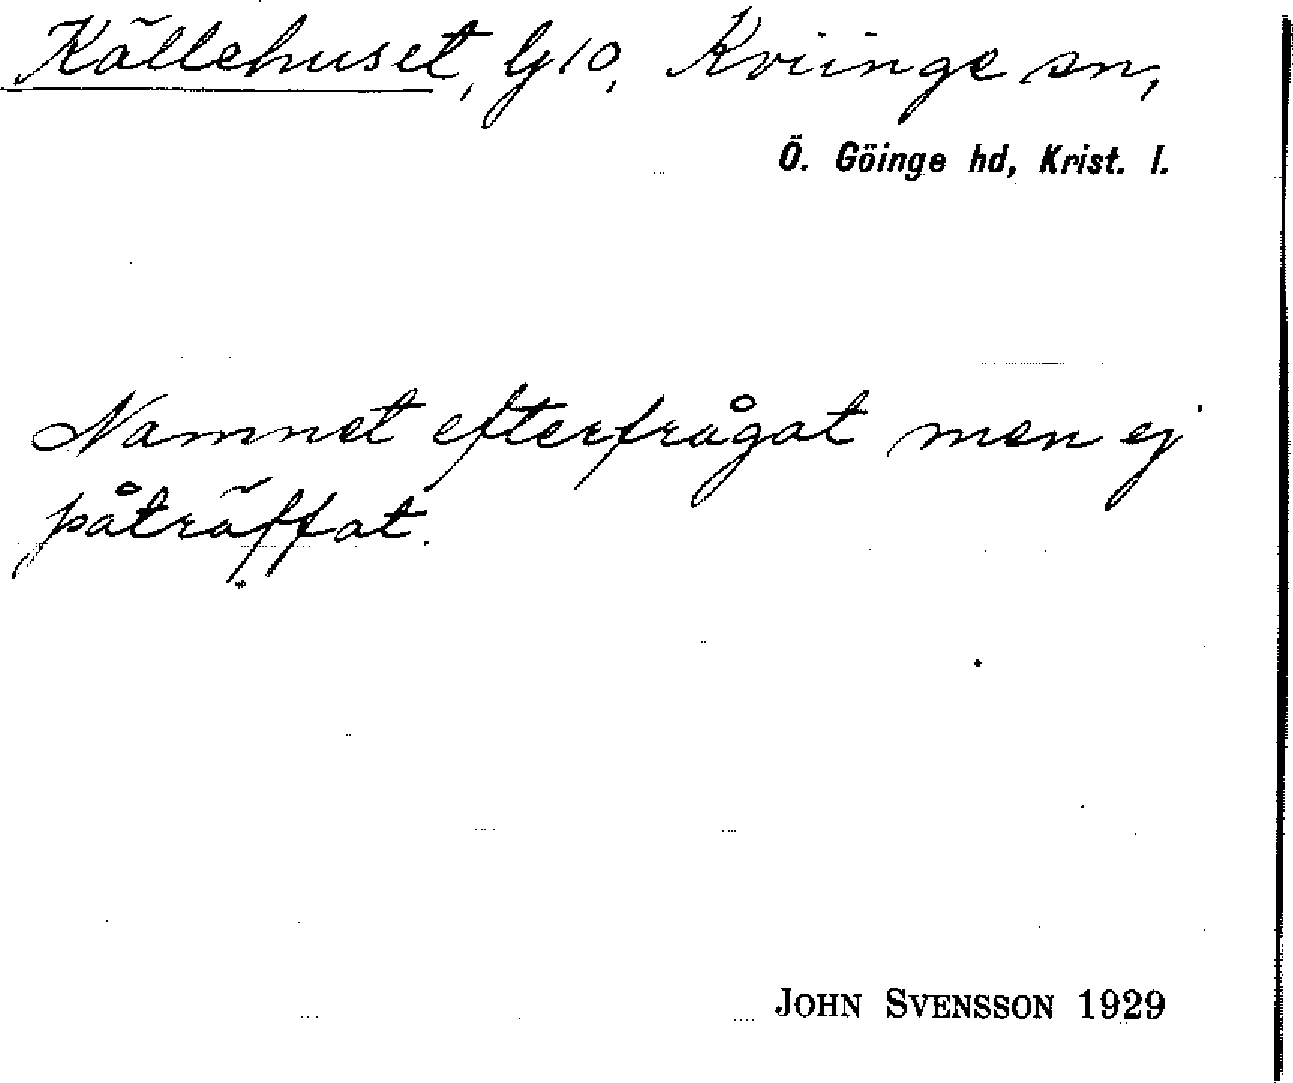 Källehuset, G10, Kviinge sn,
Ö. Göinge hd, Krist. l.
Namnet efterfrågat men ej
påträffat.
JOHN SVENSSON 1929